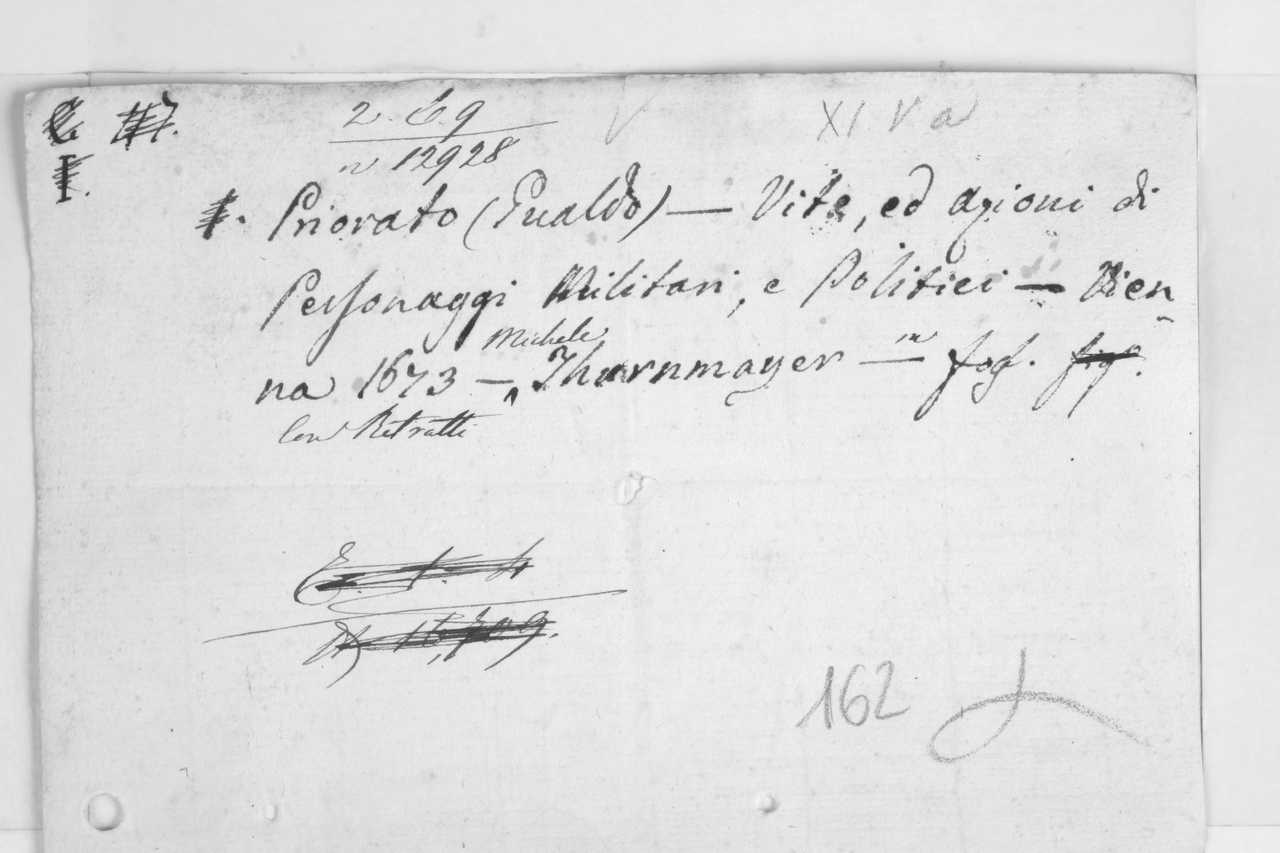 2. E. 9
XI V a
n 12928
Priorato (Gualdo) — Vite, ed azioni di
Personaggi Militari, e Politici — Vien
na 1673 — Michele Thurnmayer — in fog. fig.
Con Ritratti
162